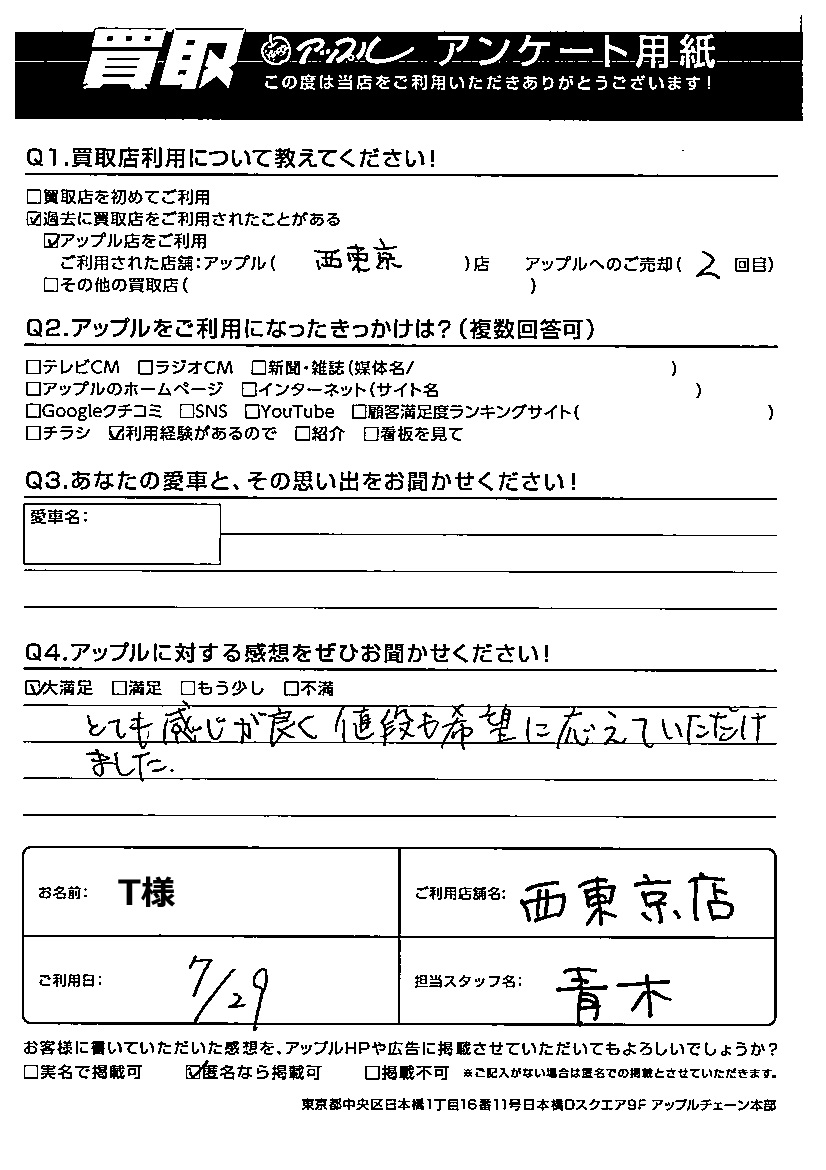 買取 アップル アンケート用紙
この度は当店をご利用いただきありがとうございます!
Q1.買取店利用について教えてください!
□買取店を初めてご利用
☑過去に買取店をご利用されたことがある
☑アップル店をご利用
ご利用された店舗:アップル( 西東京 )店 アップルへのご売却( 2 回目)
□その他の買取店( )
Q2.アップルをご利用になったきっかけは?(複数回答可)
□テレビCM □ラジオCM □新聞・雑誌(媒体名/ )
□アップルのホームページ □インターネット(サイト名 )
□Googleクチコミ □SNS □YouTube □顧客満足度ランキングサイト( )
□チラシ ☑利用経験があるので □紹介 □看板を見て
Q3.あなたの愛車と、その思い出をお聞かせください!
愛車名:
Q4.アップルに対する感想をぜひお聞かせください!
☑大満足 □満足 □もう少し □不満
とても感じが良く値段も希望に応えていただけ
ました.
お名前: T様 ご利用店舗名: 西東京店
ご利用日: 7/29 担当スタッフ名: 青木
お客様に書いていただいた感想を、アップルHPや広告に掲載させていただいてもよろしいでしょうか?
□実名で掲載可 ☑匿名なら掲載可 □掲載不可 ※ご記入がない場合は匿名での掲載とさせていただきます。
東京都中央区日本橋1丁目16番11号日本橋Dスクエア9F アップルチェーン本部